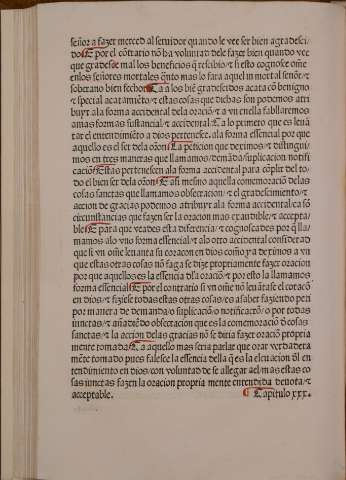 señor a fazer merced al seruidor quando le vee ser bien agradesci-
do/ E por el cõtrario nõ ha voluntad dele fazer bien quando vee
que gradesce mal los beneficios q̃ rescibio/ τ si esto cognosce oñe
enlos señores mortales q̃nto mas lo fara aquel inmortal señor/τ
soberano bien fechor/ Ca alos biẽ gradescidos acata cõ benigno
τ special acatamiẽto/τ estas cosas que dichas son podemos atri
buyr ala forma accidental dela oraciõ/ τ a vn enella fabllaremos
amas formas sustancial/τ accidental/ Ca lo primero que es leuã
tar el entendimiẽto a dios pertenesce. ala forma essencial por que
aquello es el ser dela oraõn/ La peticion que deximos/τ distingui
mos en tres maneras que llamamos/demãda/suplicacion notifi
caciõn/Estas pertenescen ala forma accidental para cõplir del to-
do el bien ser dela orõn/ E assi mesmo aquella comemoraciõ delas
cosas sanctas que llamamos obsecracion/τ el gradescimiẽto/τ
accion de gracias podemos atribuyr ala forma accidental/ca sõ
circunstancias que fazen ser la oracion mas exaudible/τ accepta/
ble/ E para que veades esta diferencia/τ cognoscades por q̃ lla
mamos alo vno forma essencial/τ alo otro accidental considerad
que si vn oñe leuanta su coraçon en dios como ya deximos a vn
que estas otras cosas nõ faga se dize propriamente fazer oracion
por que aquello es la essencia dla oraciõ/τ por esto la llamamos
forma essencial/ E por el contrario si vn oñe nõ leuãtase el coraçõ
en dios/τ fiziese todas estas otras cosas/es a saber faziendo peti
ciõ por manera de demanda/o suplicaciõ/o notificaciõ/o por todas
iunctas/τ añadiẽdo obsecracion que es la comemoraciõ ð cosas
sanctas/τ la accion delas gracias nõ se diria fazer oraciõ propria
mente tomada/ Ca aquello mas seria parlar que orar verdadera
mẽte tomado pues falesce la essencia della q̃ es la eleuacion ðl en
tendimiento en dios/con voluntad de se allegar a el/mas estas co
sas iunctas fazen la oracion propria mente entendida deuota/τ
acceptable.
Capitulo xxx.